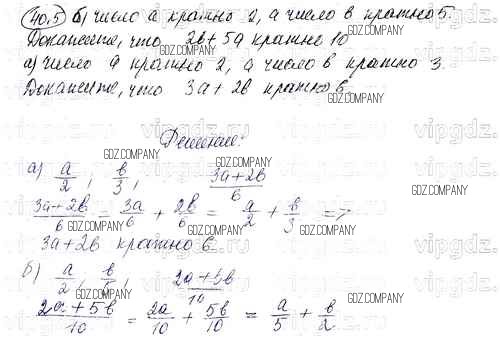 40.5 б) число а кратно 2, а число в кратно 5.
Докажите, что 2в + 5а кратно 10
а) число а кратно 2, а число в кратно 3.
Докажите, что 3а + 2в кратно 6.
GDZ.COMPANY
Решение:
а) а/2, в/3, (3а+2в)/6
(3а+2в)/6 = 3а/6 + 2в/6 = а/2 + в/3 =>
3а + 2в кратно 6.
б) а/2, в/5, (2а+5в)/10
(2а+5в)/10 = 2а/10 + 5в/10 = а/5 + в/2
vipgdz.ru